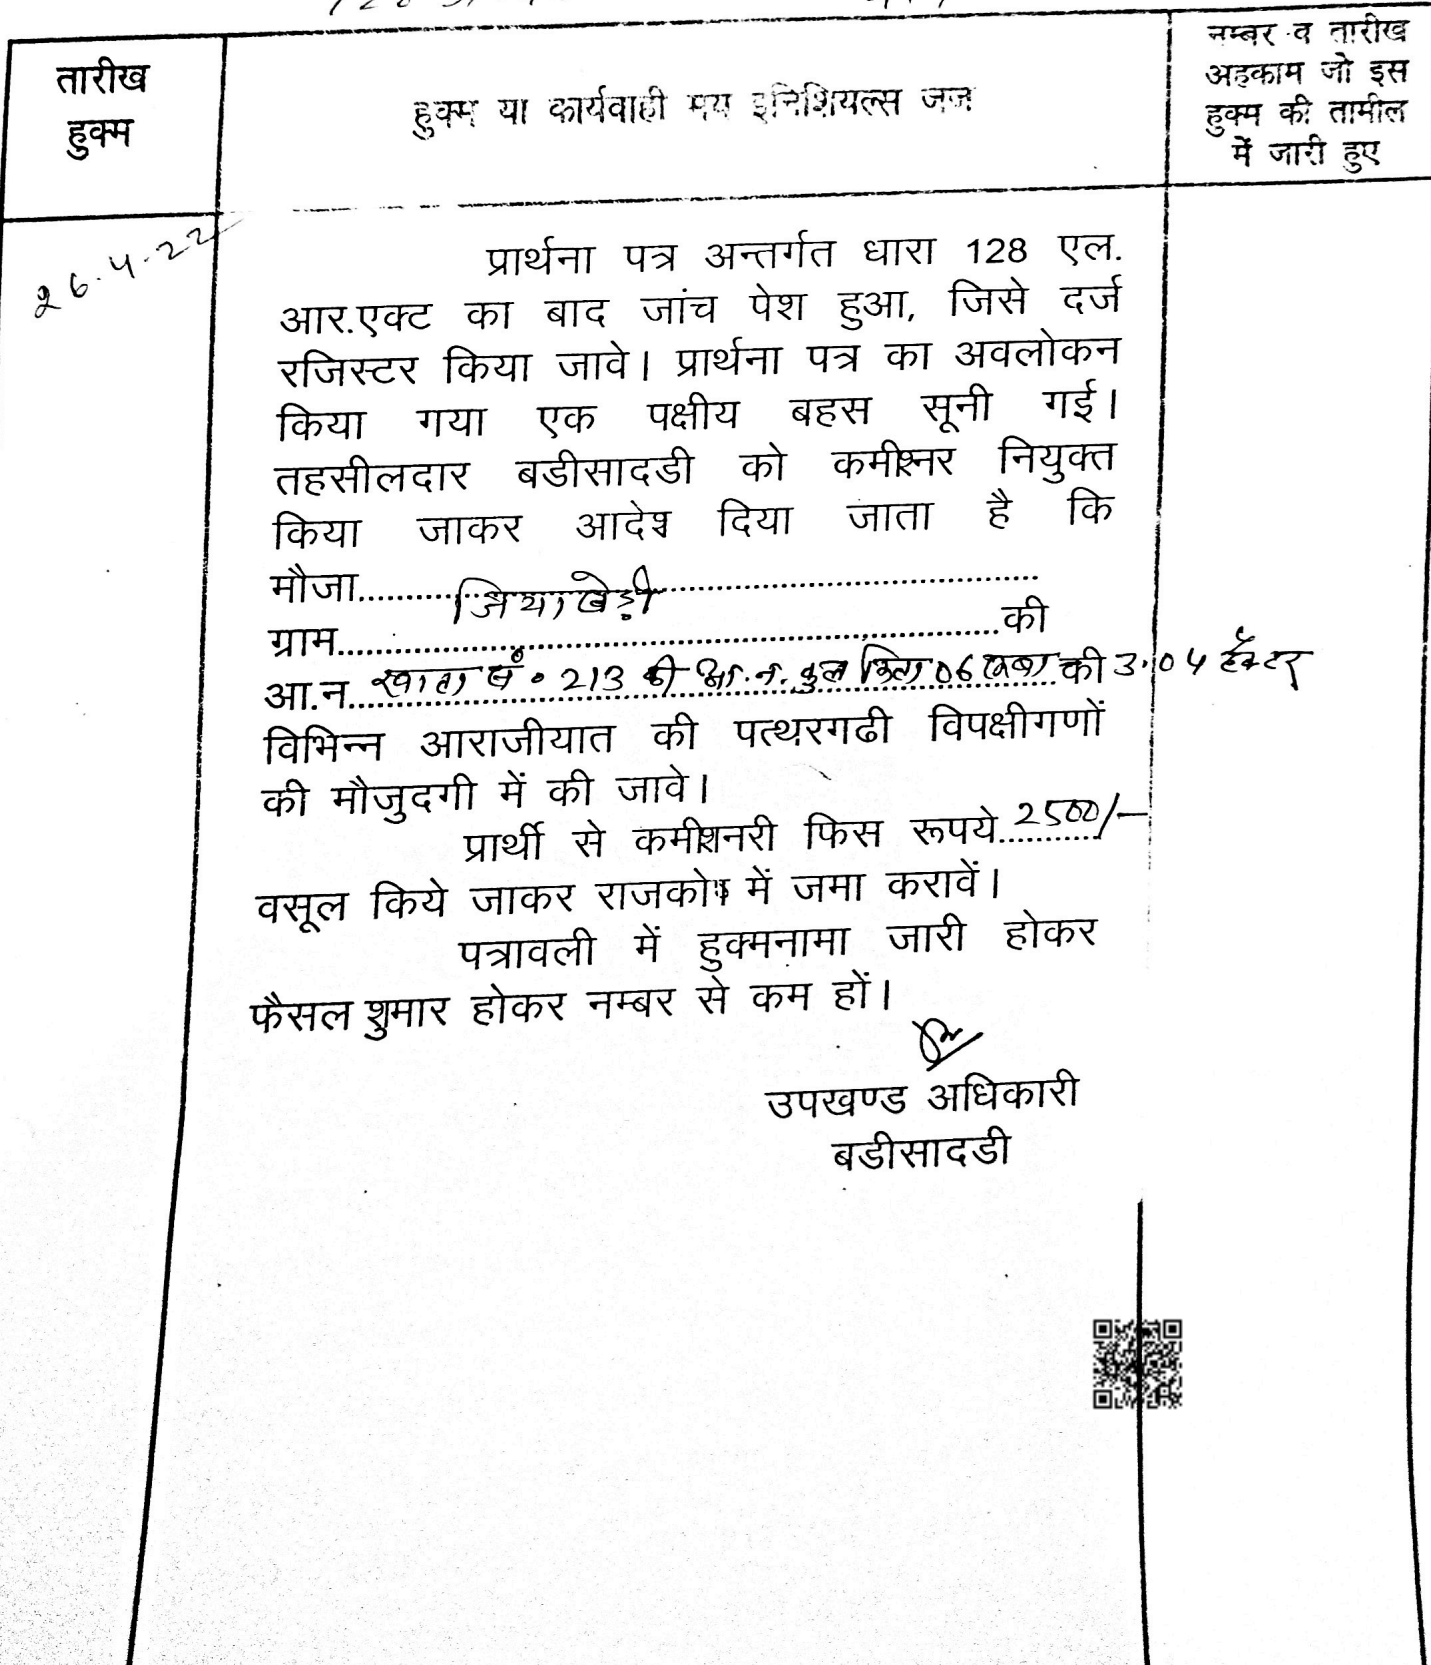 तारीख
हुक्म
हुक्म या कार्यवाही मय इनिशियल्स जज
नम्बर व तारीख
अहकाम जो इस
हुक्म की तामील
में जारी हुए
26.4.22
प्रार्थना पत्र अन्तर्गत धारा 128 एल.
आर.एक्ट का बाद जांच पेश हुआ, जिसे दर्ज
रजिस्टर किया जावे। प्रार्थना पत्र का अवलोकन
किया गया एक पक्षीय बहस सूनी गई।
तहसीलदार बडीसादडी को कमीश्नर नियुक्त
किया जाकर आदेश दिया जाता है कि
मौजा.......जियाखेड़ी.......
ग्राम.......की
आ.न. खाता सं. 213 की आ.न. कुल किता 06 रकबा की 3.04 हैक्टर
विभिन्न आराजीयात की पत्थरगढी विपक्षीगणों
की मौजुदगी में की जावे।
प्रार्थी से कमीशनरी फिस रूपये 2500/-
वसूल किये जाकर राजकोष में जमा करावें।
पत्रावली में हुक्मनामा जारी होकर
फैसल शुमार होकर नम्बर से कम हों।
उपखण्ड अधिकारी
बडीसादडी